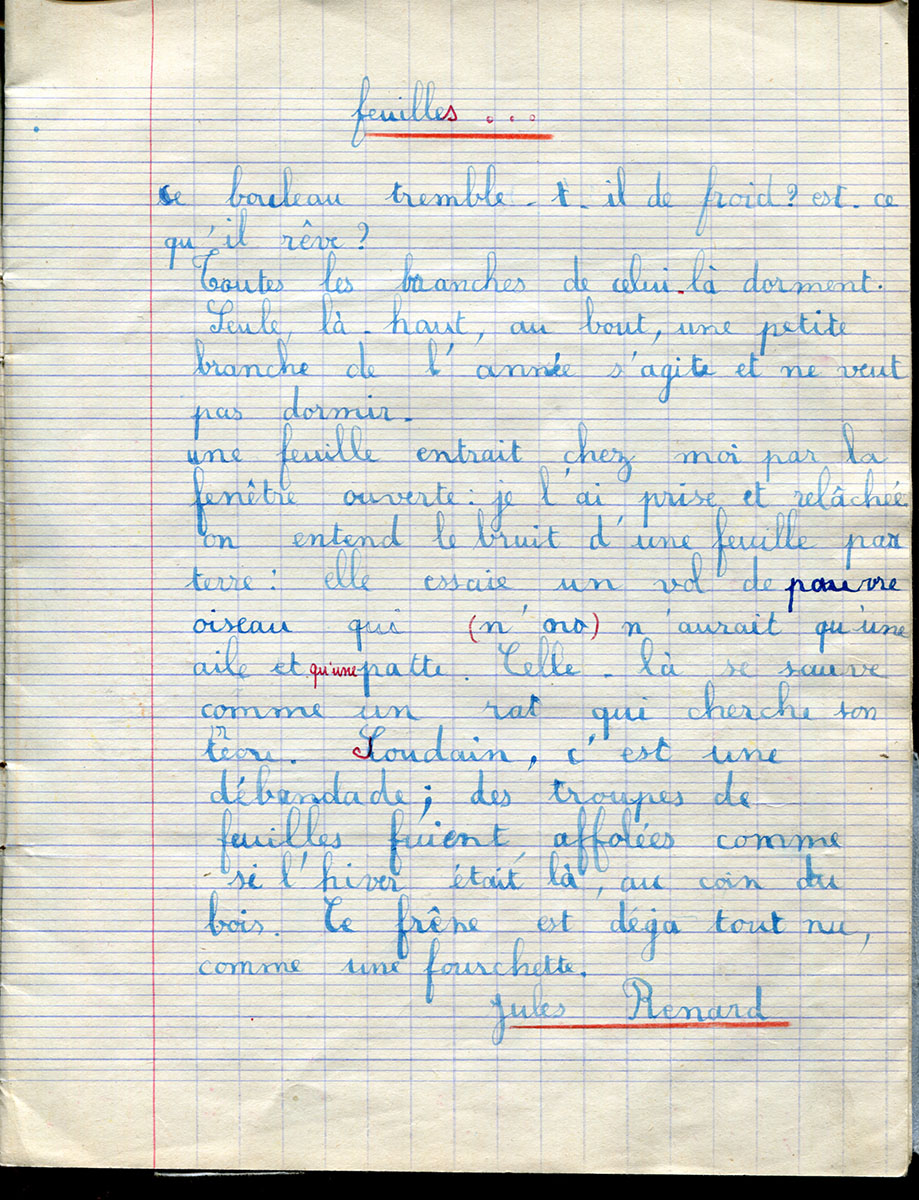 feuilles ...
ce bouleau tremble-t-il de froid? est-ce
qu'il rêve?
Toutes les branches de celui-là dorment.
Seule, là-haut, au bout, une petite
branche de l'année s'agite et ne veut
pas dormir.
une feuille entrait chez moi par la
fenêtre ouverte: je l'ai prise et relâchée.
on entend le bruit d'une feuille par
terre: elle essaie un vol de pauvre
oiseau qui (n'ono) n'aurait qu'une
aile et qu'une patte. Celle-là se sauve
comme un rat qui cherche son
Soudain, c'est une
débandade; des troupes de
feuilles fuient, affolées comme
si l'hiver était là, au coin du
bois. Le frêne est déja tout nu,
comme une fourchette.
Jules Renard